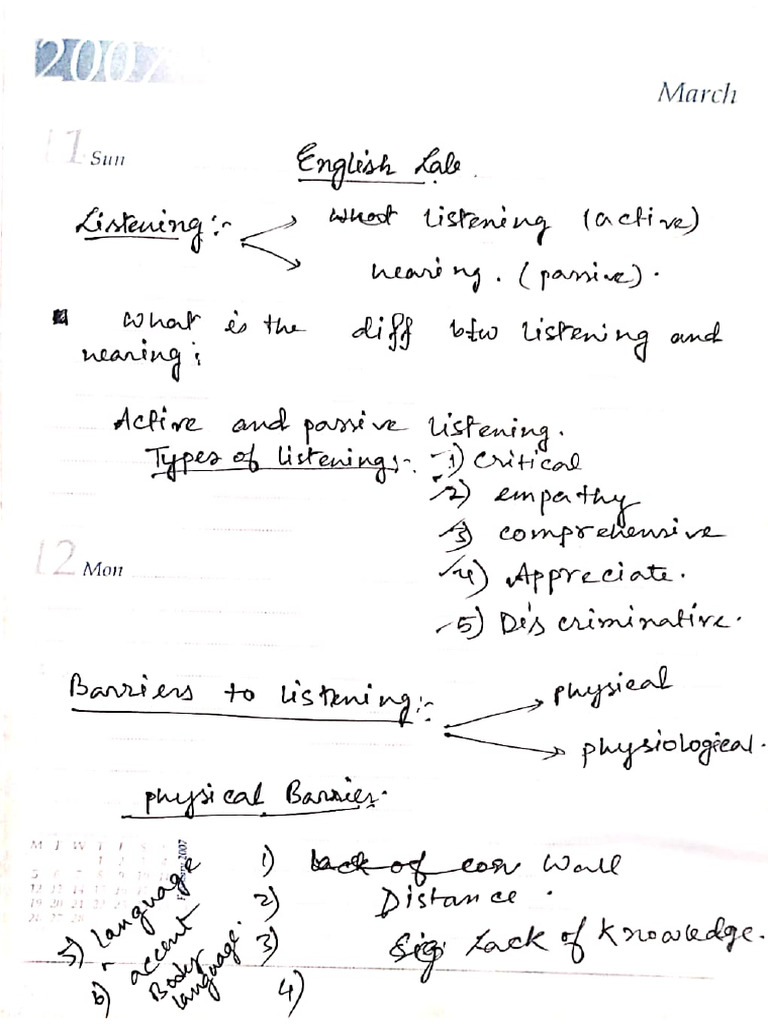 2007
March
11 Sun
English Lab.
Listening:- listening (active)
hearing. (passive).
What is the diff btw listening and
hearing:
Active and passive listening.
Types of listenings:- 1) Critical
2) empathy
3) comprehensive
12 Mon
4) Appreciate.
5) Discriminative.
Barriers to listening:- physical
physiological.
physical Barrier.
M T W T F S S
February 2007
1) lack of con Wall
2) Distance.
3) Sig Lack of Knowledge.
4)
5) Language
accent
6) Body
language.